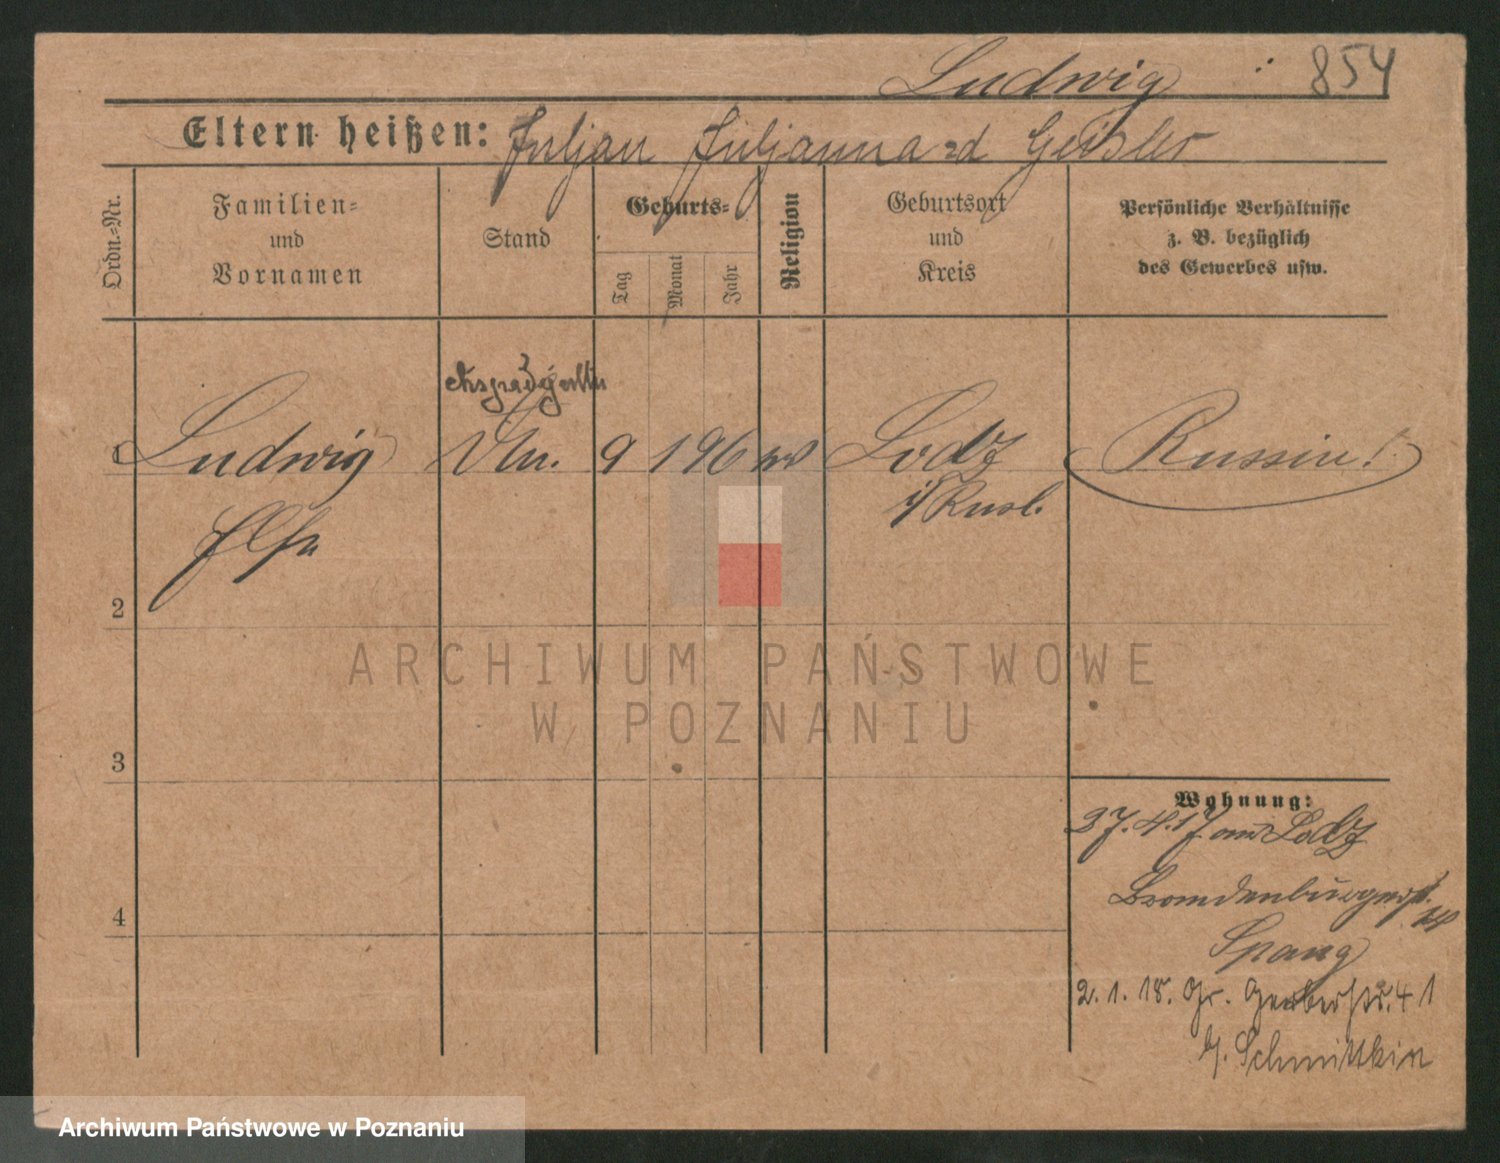 Ludwig 854
Eltern heißen: Juljan Juljanna Geisler
Ordn.-Nr.
Familien-
und
Vornamen
Stand
Geburts-
Tag
Monat
Jahr
Religion
Geburtsort
und
Kreis
Persönliche Verhältnisse
z. B. bezüglich
des Gewerbes usw.
1 Ludwig 9 1 96 Lodz Russin!
i/ Rusl.
Else
2
3
4
Wohnung:
27.4.17. aus Lodz
Brandenburgerstr.
Spang
2.1.18. Gr. Gerberstr. 41
b. Schmittkin
ARCHIWUM PAŃSTWOWE
W POZNANIU
Archiwum Państwowe w Poznaniu